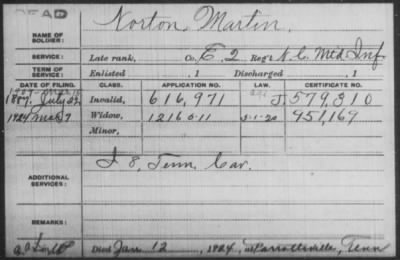 DEAD
Norton, Martin.
NAME OF SOLDIER:
SERVICE: Late rank, Co. E. 2 Reg't N.C. Mtd. Inf.
TERM OF SERVICE: Enlisted , 1 Discharged , 1
DATE OF FILING. CLASS. APPLICATION NO. LAW. CERTIFICATE NO.
1887. July 22, Invalid, 616,971 J. 579,310
1924 Mar 7 Widow, 1216011 5-1-20 951,169
Minor,
I 8, Tenn. Cav.
ADDITIONAL SERVICES:
REMARKS:
Died Jan. 12, 1924, at Parrottsville, Tenn